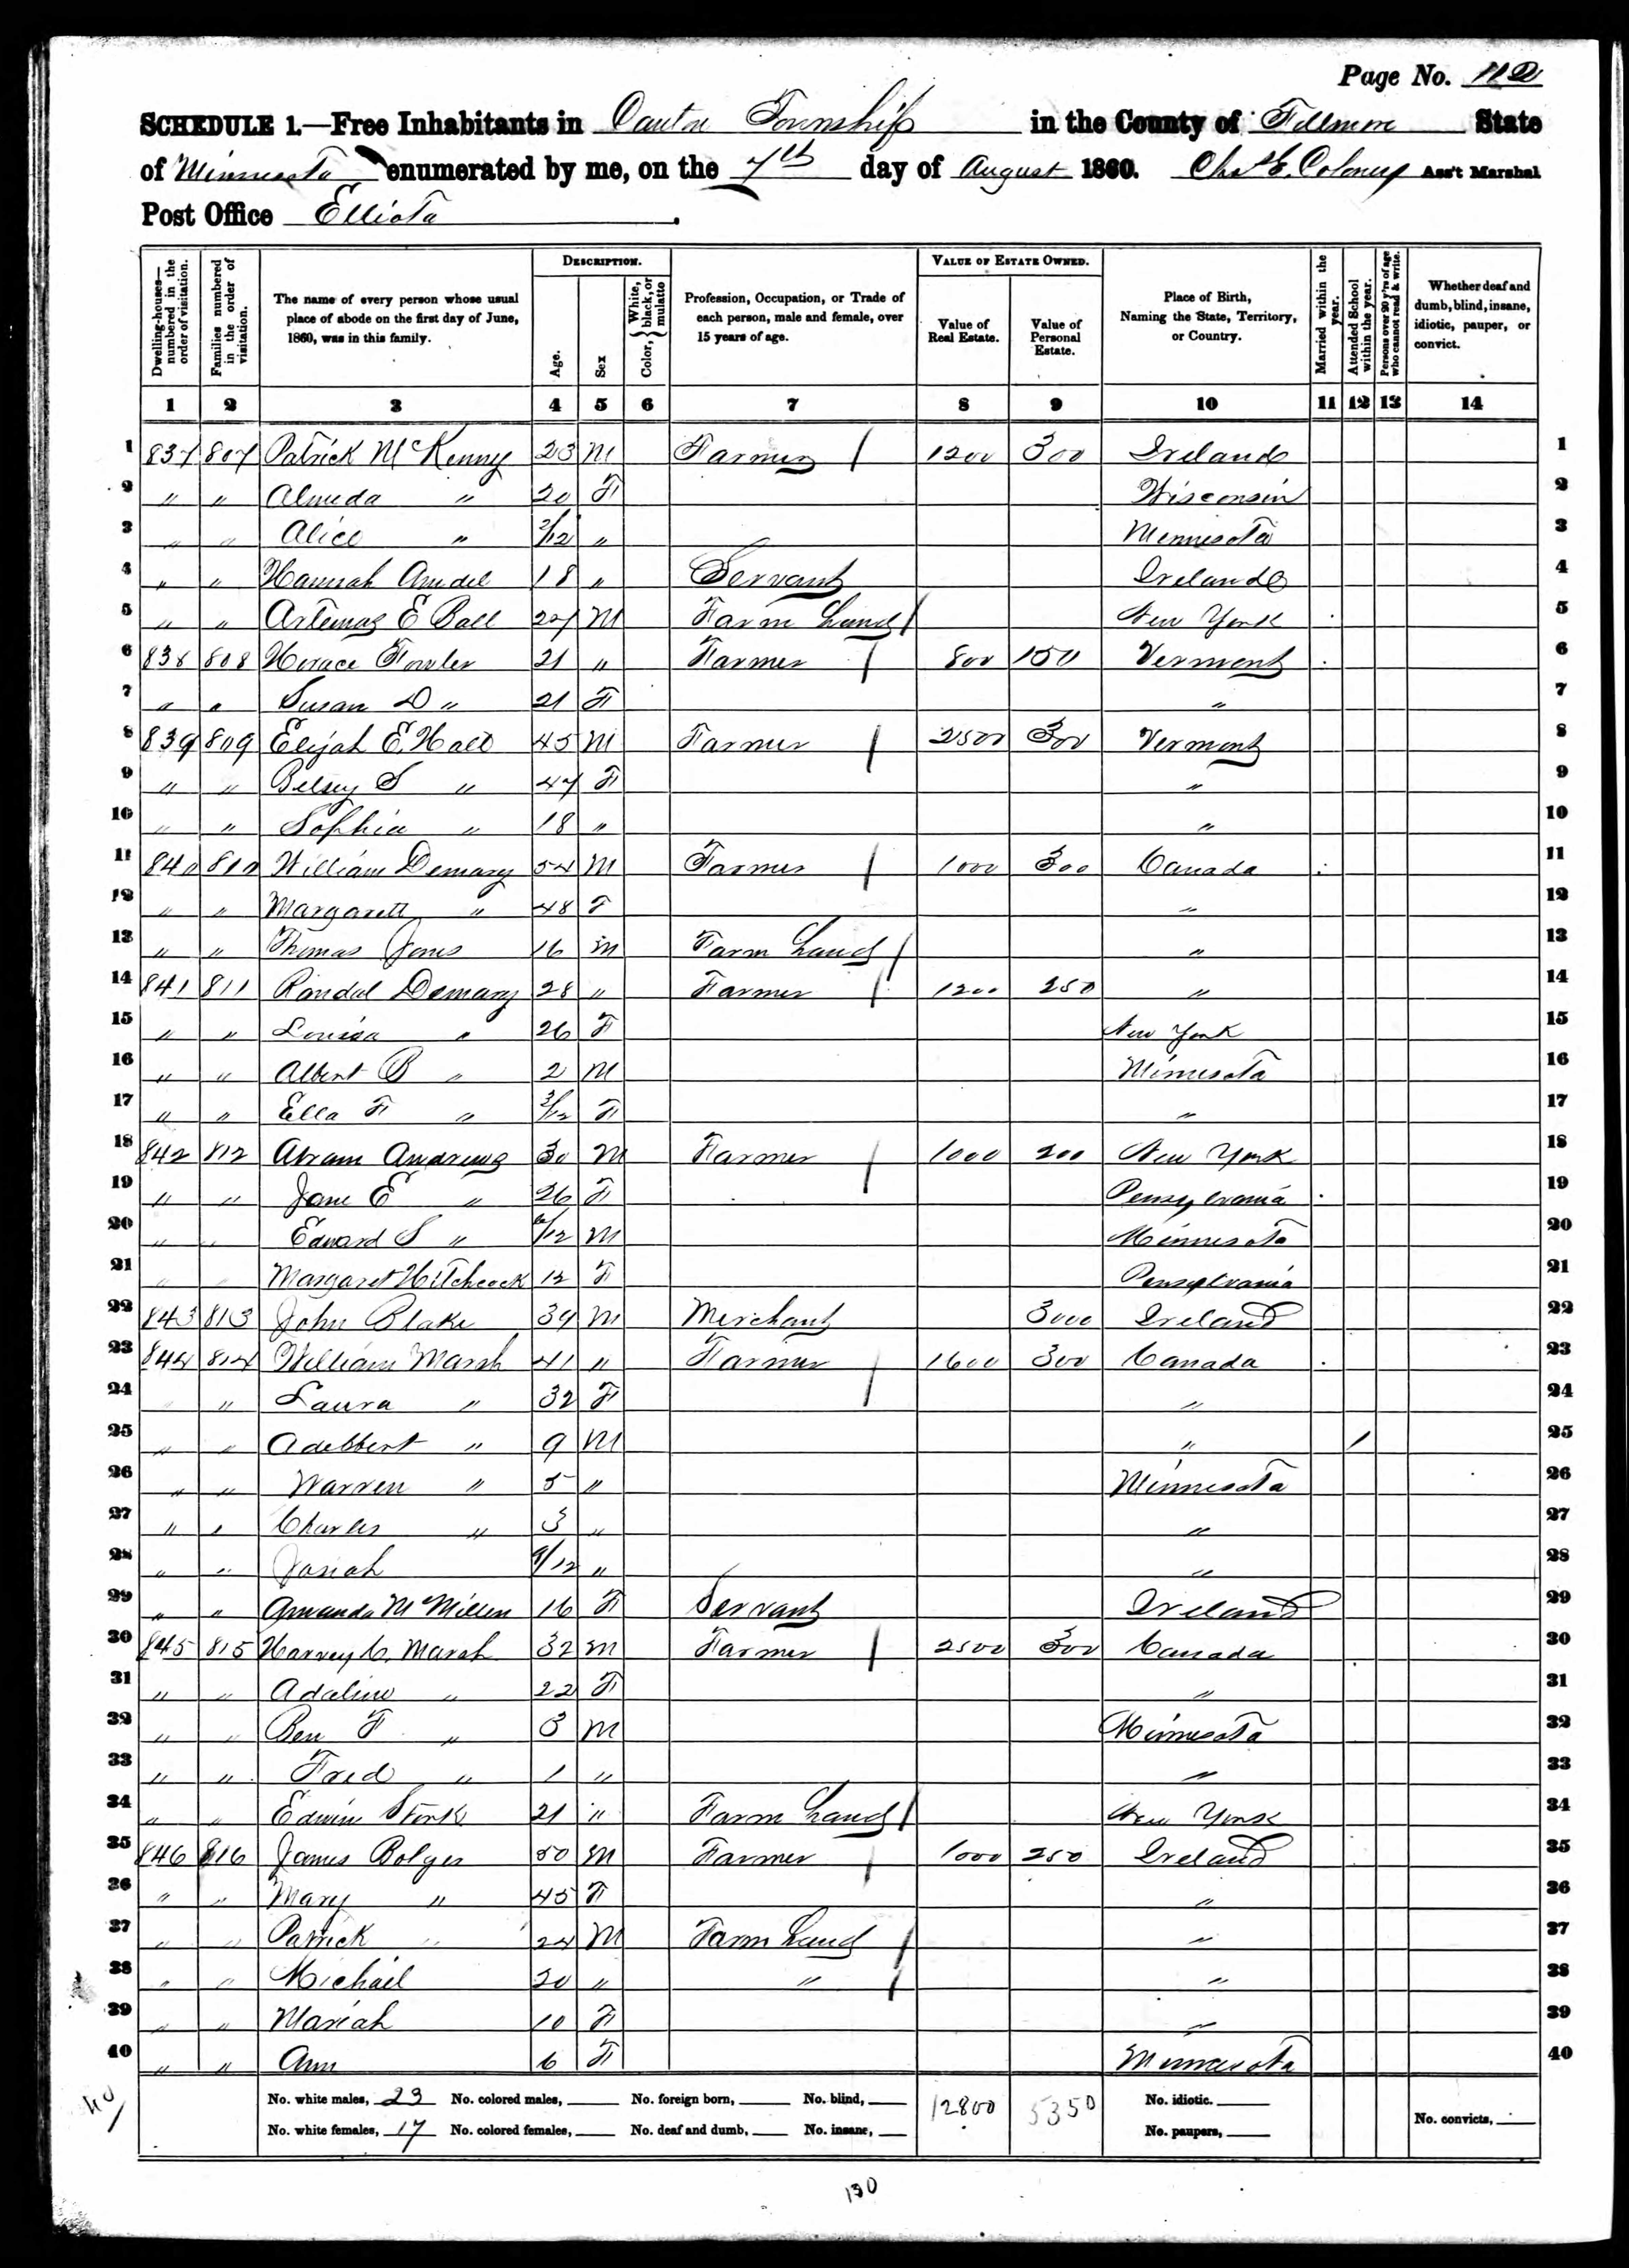 Page No. 112
SCHEDULE 1.—Free Inhabitants in Canton Township in the County of Fillmore State
of Minnesota enumerated by me, on the 7th day of August 1860. Chas E. Colony Ass't Marshal
Post Office Elliota.
Dwelling-houses—numbered in the order of visitation.
Families numbered in the order of visitation.
The name of every person whose usual place of abode on the first day of June, 1860, was in this family.
DESCRIPTION.
Age.
Sex
Color, White, black, or mulatto
Profession, Occupation, or Trade of each person, male and female, over 15 years of age.
VALUE OF ESTATE OWNED.
Value of Real Estate.
Value of Personal Estate.
Place of Birth, Naming the State, Territory, or Country.
Married within the year.
Attended School within the year.
Persons over 20 y'rs of age who cannot read & write.
Whether deaf and dumb, blind, insane, idiotic, pauper, or convict.
1 2 3 4 5 6 7 8 9 10 11 12 13 14
1 837 807 Patrick McKenny 23 M Farmer / 1200 300 Ireland 1
2 " " Almeda " 20 F Wisconsin 2
3 " " Alice " 2/12 " Minnesota 3
4 " " Hannah 18 " Servant Ireland 4
5 " " Artemas E Ball 27 M Farm Hand / New York 5
6 838 808 Horace Fowler 21 " Farmer / 800 150 Vermont 6
7 " " Susan D " 21 F " 7
8 839 809 Elijah E. Hall 45 M Farmer / 2500 300 Vermont 8
9 " " Betsey S " 47 F " 9
10 " " Sophia " 18 " " 10
11 840 810 William Demary 54 M Farmer / 1000 300 Canada 11
12 " " Margarett " 48 F " 12
13 " " Thomas Jones 16 M Farm Hand / " 13
14 841 811 Randal Demary 28 " Farmer / 1200 250 " 14
15 " " Louisa " 26 F New York 15
16 " " Albert B " 2 M Minnesota 16
17 " " Ella F " 3/12 F " 17
18 842 812 Abram Andrews 30 M Farmer / 1000 200 New York 18
19 " " Jane E " 26 F Pensylvania 19
20 " " Edward S " 6/12 M Minnesota 20
21 " " Margaret Hitchcock 12 F Pensylvania 21
22 843 813 John Blake 39 M Merchant 3000 Ireland 22
23 844 814 William Marsh 41 " Farmer / 1600 300 Canada 23
24 " " Laura " 32 F " 24
25 " " Adelbert " 9 M " / 25
26 " " Warren " 5 " Minnesota 26
27 " " Charles " 3 " " 27
28 " " Josiah 9/12 " " 28
29 " " Amanda McMillen 16 F Servant Ireland 29
30 845 815 Harvey C. Marsh 32 M Farmer / 2500 300 Canada 30
31 " " Adaline " 22 F " 31
32 " " Ben F " 3 M Minnesota 32
33 " " Fred " 1 " " 33
34 " " Edwin Stork 21 " Farm Hand / New York 34
35 846 816 James Bolger 50 M Farmer / 1000 250 Ireland 35
36 " " Mary " 45 F " 36
37 " " Patrick " 24 M Farm Hand / " 37
38 " " Michael 20 " " / " 38
39 " " Mariah 10 F " 39
40 " " Ann 6 F Minnesota 40
No. white males, 23 No. colored males, No. foreign born, No. blind, 12800 5350 No. idiotic.
No. white females, 17 No. colored females, No. deaf and dumb, No. insane, No. paupers, No. convicts,
40
130